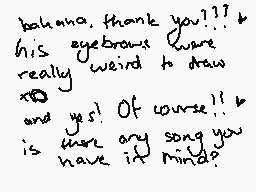 bahaha, thank you??? ♥
his eyebrows were
really weird to draw
xO
and yes! Of course!! ♥
is there any song you
have in mind?